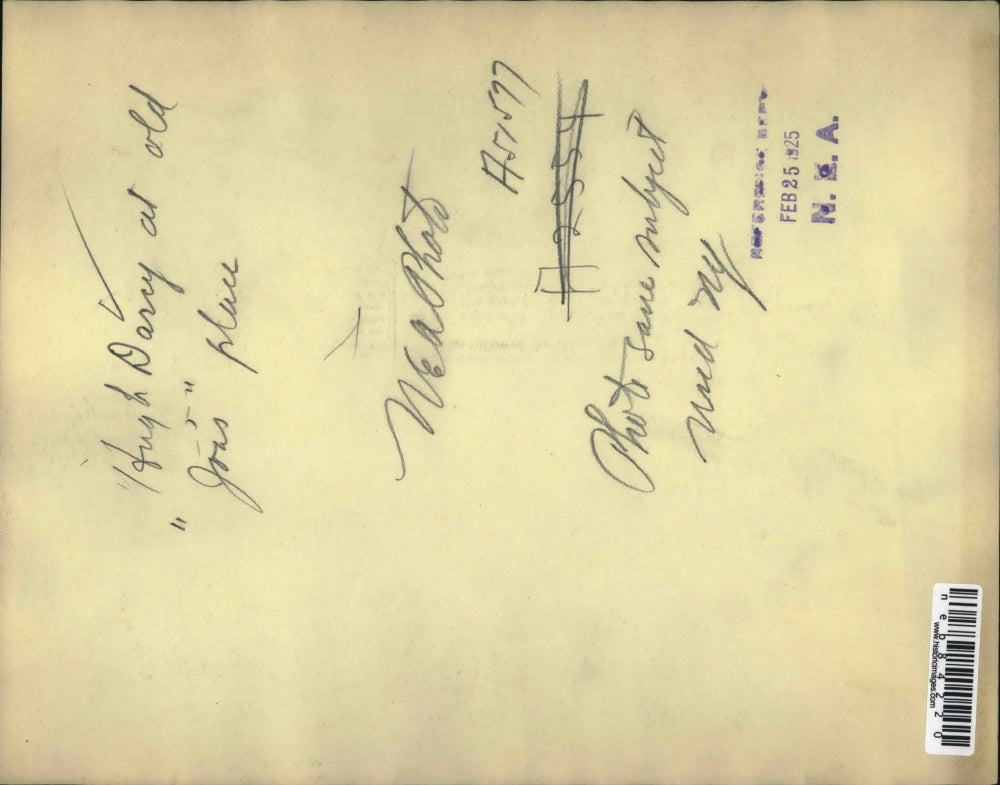 "Hugh Darry at old
"Jons" place
NEA Photo
A51577
H 2554
Photo same subject
used NY
REFERENCE DEPT
FEB 25 1925
N. E. A.
neb84220
www.historicimages.com